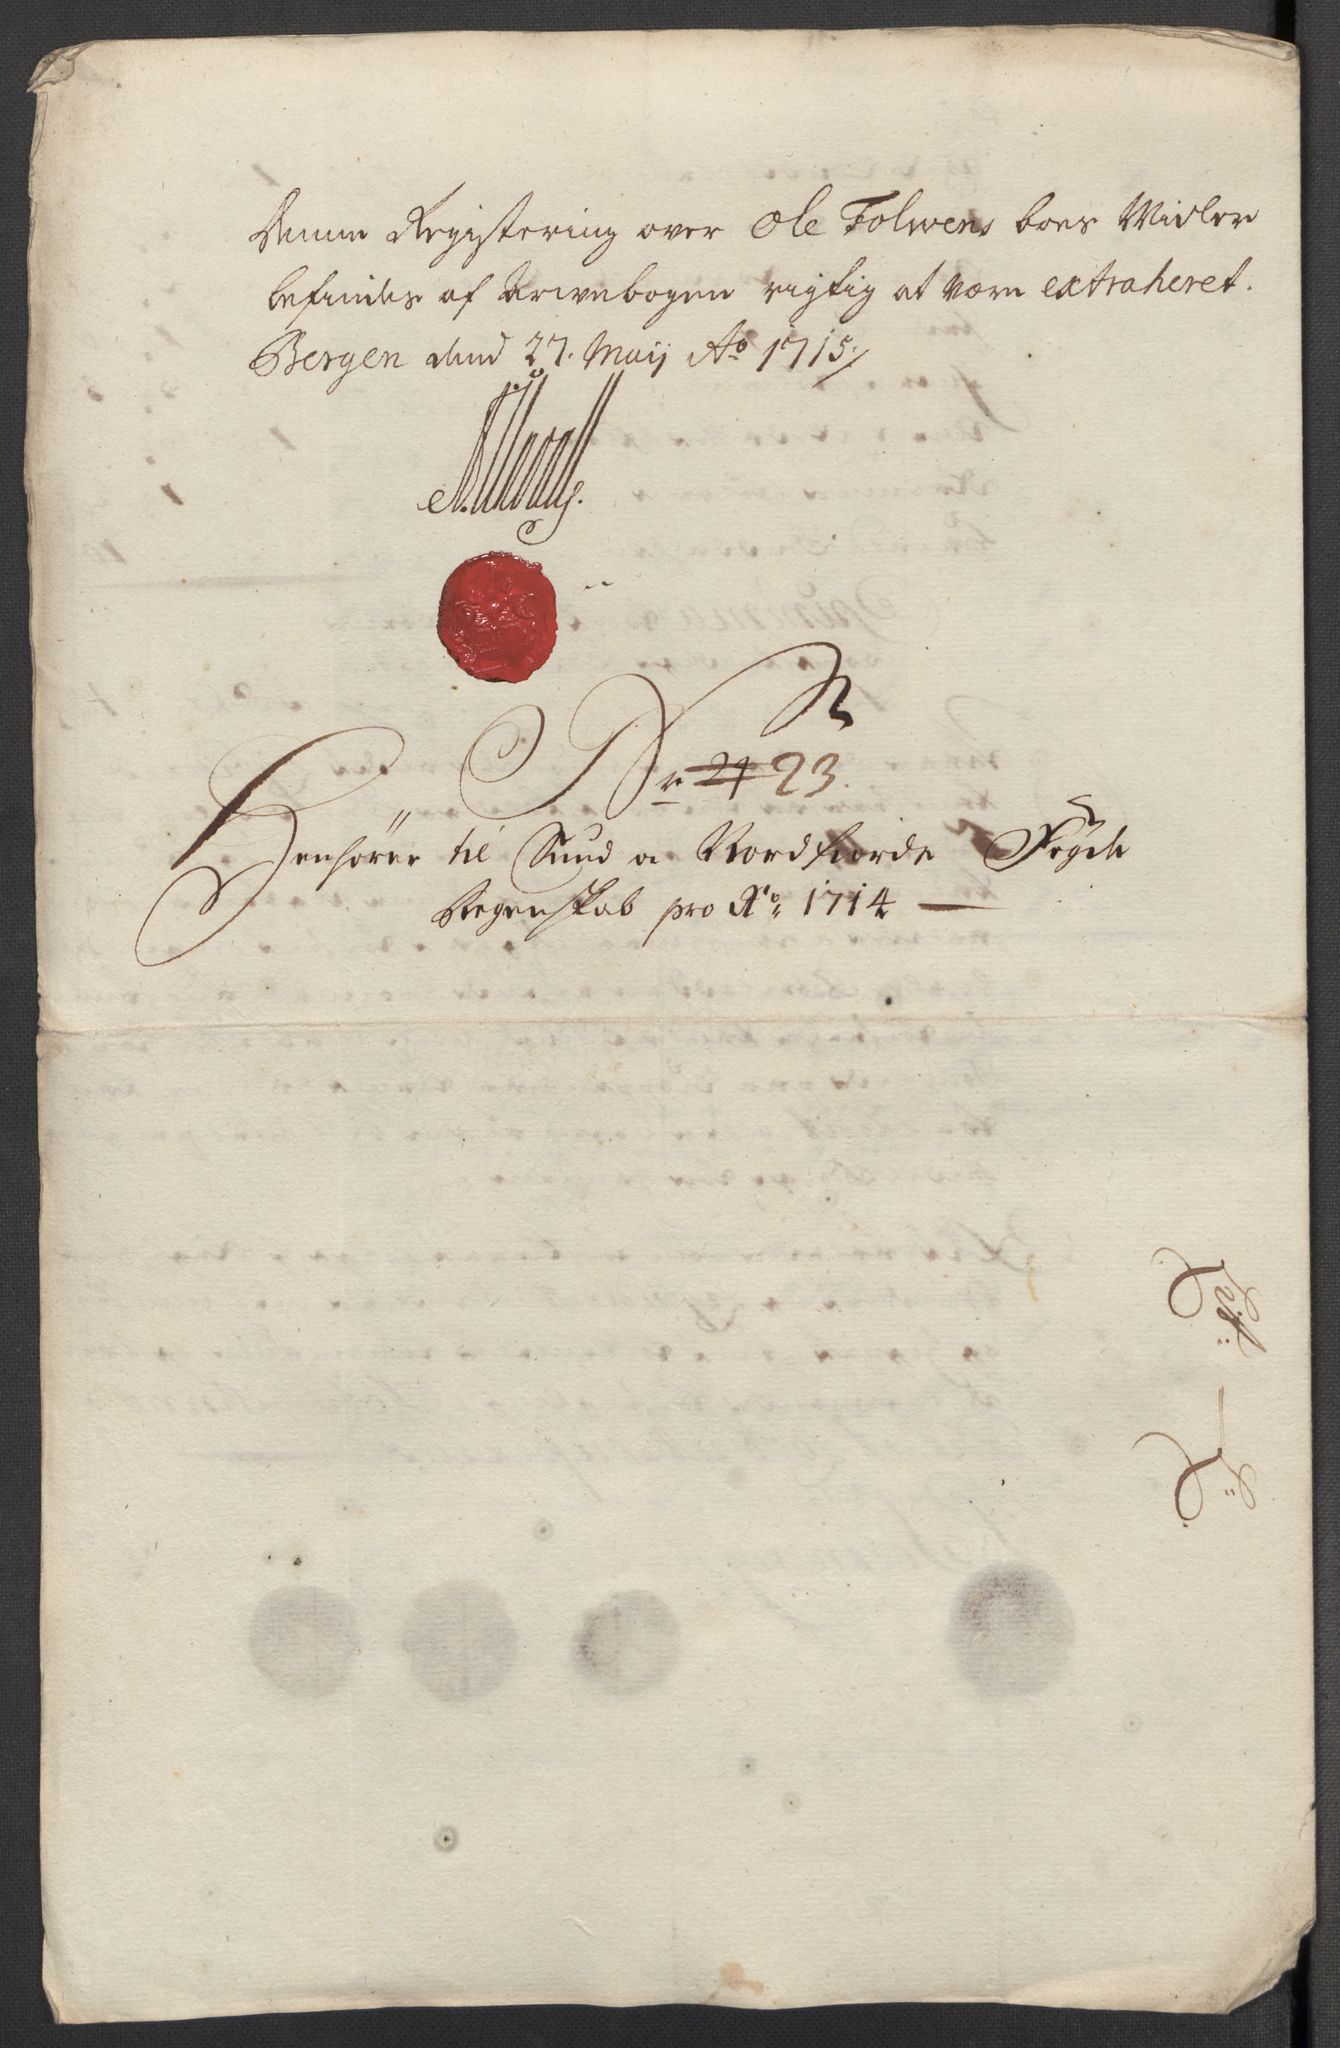 Denne Registering over Ole Folwens boes Midler
befindes af Arwebogen rigtig at være extraheret.
Bergen dend 27. Maij Ao 1715
Nr 24 23.
Henhører til Sund o Nordfiords Fogde
Regenskab pro Ao 1714